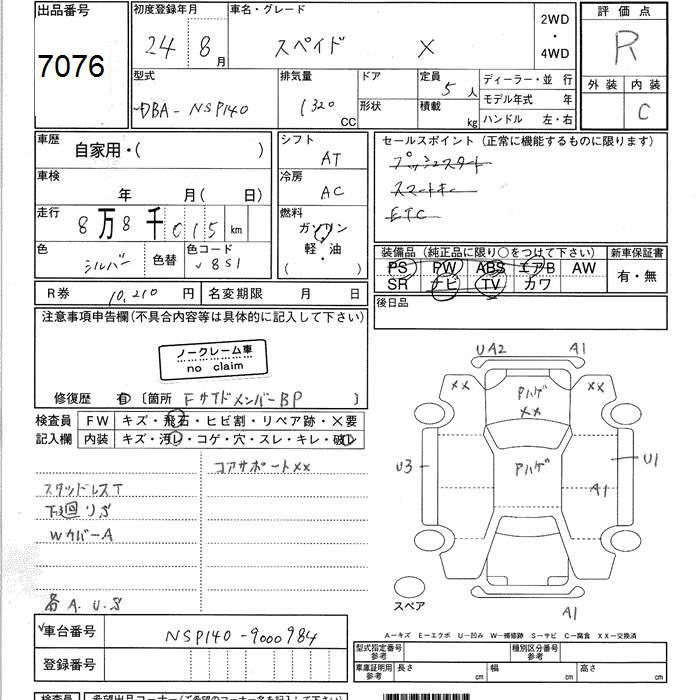 出品番号
7076
初度登録年月
24 8月
車名・グレード
スペイド X
2WD
・
4WD
評価点
R
外装 内装
C
型式
DBA-NSP140
排気量
1320 CC
ドア
形状
定員
5人
積載
kg
ディーラー・並 行
モデル年式 年
ハンドル 左・右
車歴
自家用・( )
車検
年 月( 日)
走行
8万8千015km
色
シルバー
色替
色コード
851
シフト
AT
冷房
AC
燃料
ガソリン
軽・油
( ・ )
セールスポイント (正常に機能するものに限ります)
プッシュスタート
スマートキー
ETC
装備品 (純正品に限り○をつけて下さい)
PS PW ABS エアB AW
SR ナビ TV カワ
新車保証書
有・無
後日品
R券 10,210 円
名変期限 月 日
注意事項申告欄(不具合内容等は具体的に記入して下さい)
ノークレーム車
no claim
修復歴 有 〔箇所 FサイドメンバーBP 〕
検査員
記入欄
FW キズ・飛石・ヒビ割・リペア跡・×要
内装 キズ・汚レ・コゲ・穴・スレ・キレ・破レ
コアサポートXX
スタッドレスT
下廻リS
WカバーA
各A.U.S
UA2 A1
XX XX
Pハゲ
XX
Pハゲ
U3 U1
A1
A1
スペア
A−キズ E−エクボ U−凹み W−補修跡 S−サビ C−腐食 XX−交換済
車台番号
NSP140-9000984
登録番号
型式指定番号
参考
種別区分番号
参考
車庫証明用
参考
長さ cm
幅 cm
高さ cm
検査員
希望出品コーナー(ご希望のコーナー名を記入して下さい)